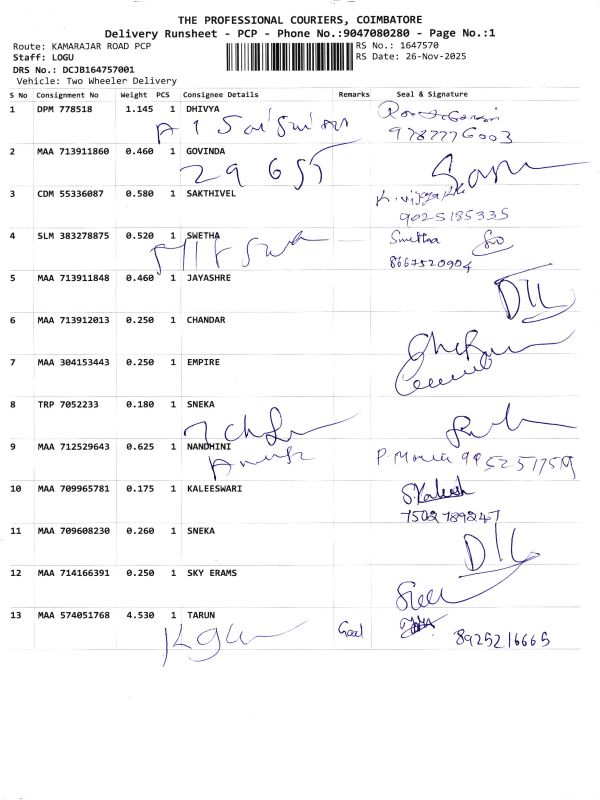 THE PROFESSIONAL COURIERS, COIMBATORE
Delivery Runsheet - PCP - Phone No.:9047080280 - Page No.:1
Route: KAMARAJAR ROAD PCP
RS No.: 1647570
Staff: LOGU
RS Date: 26-Nov-2025
DRS No.: DCJB164757001
Vehicle: Two Wheeler Delivery
S No Consignment No Weight PCS Consignee Details Remarks Seal & Signature
1 DPM 778518 1.145 1 DHIVYA
9787776003
2 MAA 713911860 0.460 1 GOVINDA
29 655
3 CDM 55336087 0.580 1 SAKTHIVEL
9025185335
4 SLM 383278875 0.520 1 SWETHA Swetha
8667520904
5 MAA 713911848 0.460 1 JAYASHRE
6 MAA 713912013 0.250 1 CHANDAR
7 MAA 304153443 0.250 1 EMPIRE
8 TRP 7052233 0.180 1 SNEKA
9 MAA 712529643 0.625 1 NANDHINI
10 MAA 709965781 0.175 1 KALEESWARI
7502789247
11 MAA 709608230 0.260 1 SNEKA
12 MAA 714166391 0.250 1 SKY ERAMS
13 MAA 574051768 4.530 1 TARUN
8925216665